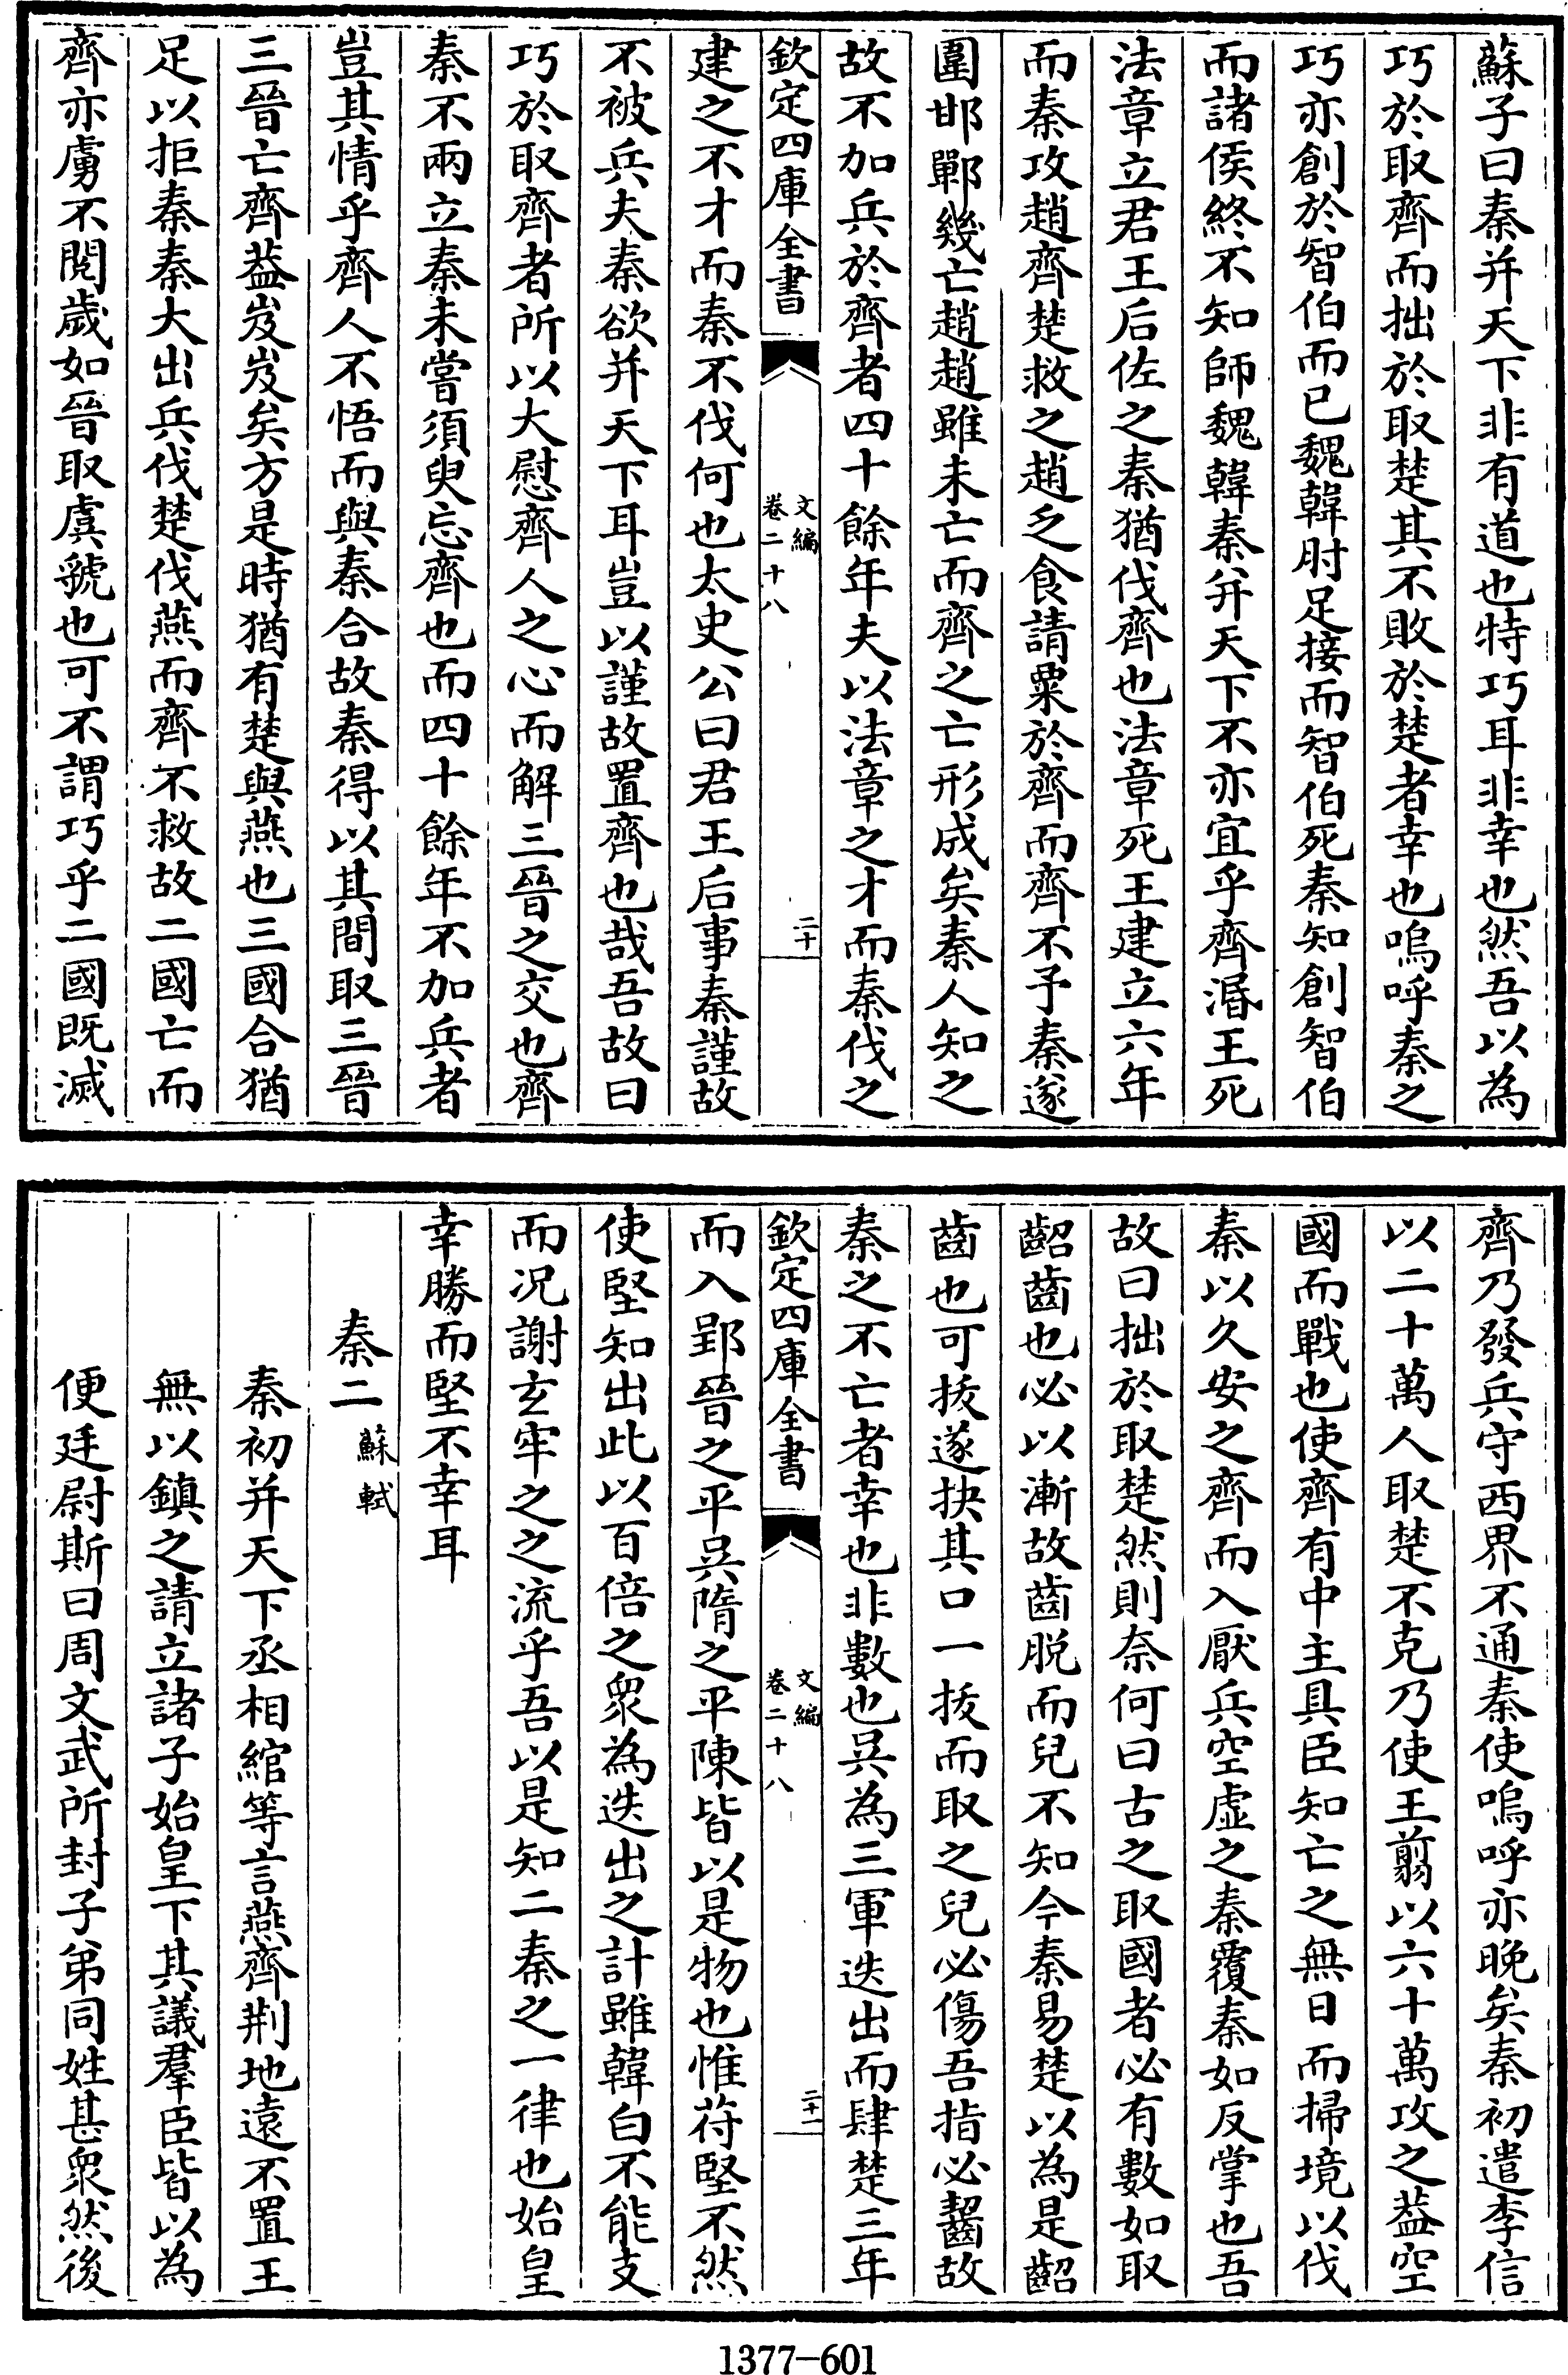 蘇子曰秦并天下非有道也特巧耳非幸也然吾以為
巧於取齊而拙於取楚其不敗於楚者幸也嗚呼秦之
巧亦創於智伯而已魏韓肘足接而智伯死秦知創智伯
而諸侯終不知師魏韓秦并天下不亦宜乎齊湣王死
法章立君王后佐之秦猶伐齊也法章死王建立六年
而秦攻趙齊楚救之趙乏食請粟於齊而齊不予秦遂
圍邯鄲幾亡趙趙雖未亡而齊之亡形成矣秦人知之
故不加兵於齊者四十餘年夫以法章之才而秦伐之
欽定四庫全書
文編
卷二十八
二十
建之不才而秦不伐何也太史公曰君王后事秦謹故
不被兵夫秦欲并天下耳豈以謹故置齊也哉吾故曰
巧於取齊者所以大慰齊人之心而解三晉之交也齊
秦不兩立秦未嘗須臾忘齊也而四十餘年不加兵者
豈其情乎齊人不悟而與秦合故秦得以其間取三晉
三晉亡齊葢岌岌矣方是時猶有楚與燕也三國合猶
足以拒秦秦大出兵伐楚伐燕而齊不救故二國亡而
齊亦虜不閱歲如晉取虞虢也可不謂巧乎二國既滅
齊乃發兵守西界不通秦使嗚呼亦晚矣秦初遣李信
以二十萬人取楚不克乃使王翦以六十萬攻之葢空
國而戰也使齊有中主具臣知亡之無日而掃境以伐
秦以久安之齊而入厭兵空虛之秦覆秦如反掌也吾
故曰拙於取楚然則奈何曰古之取國者必有數如取
齠齒也必以漸故齒脫而兒不知今秦易楚以為是齠
齒也可拔遂抉其口一拔而取之兒必傷吾指必齧故
秦之不亡者幸也非數也吳為三軍迭出而肆楚三年
欽定四庫全書
文編
卷二十八
二十一
而入郢晉之平吳隋之平陳皆以是物也惟苻堅不然
使堅知出此以百倍之眾為迭出之計雖韓白不能支
而况謝玄牢之之流乎吾以是知二秦之一律也始皇
幸勝而堅不幸耳
秦二 蘇軾
秦初并天下丞相綰等言燕齊荆地遠不置王
無以鎮之請立諸子始皇下其議羣臣皆以為
便廷尉斯曰周文武所封子弟同姓甚眾然後
1377-601